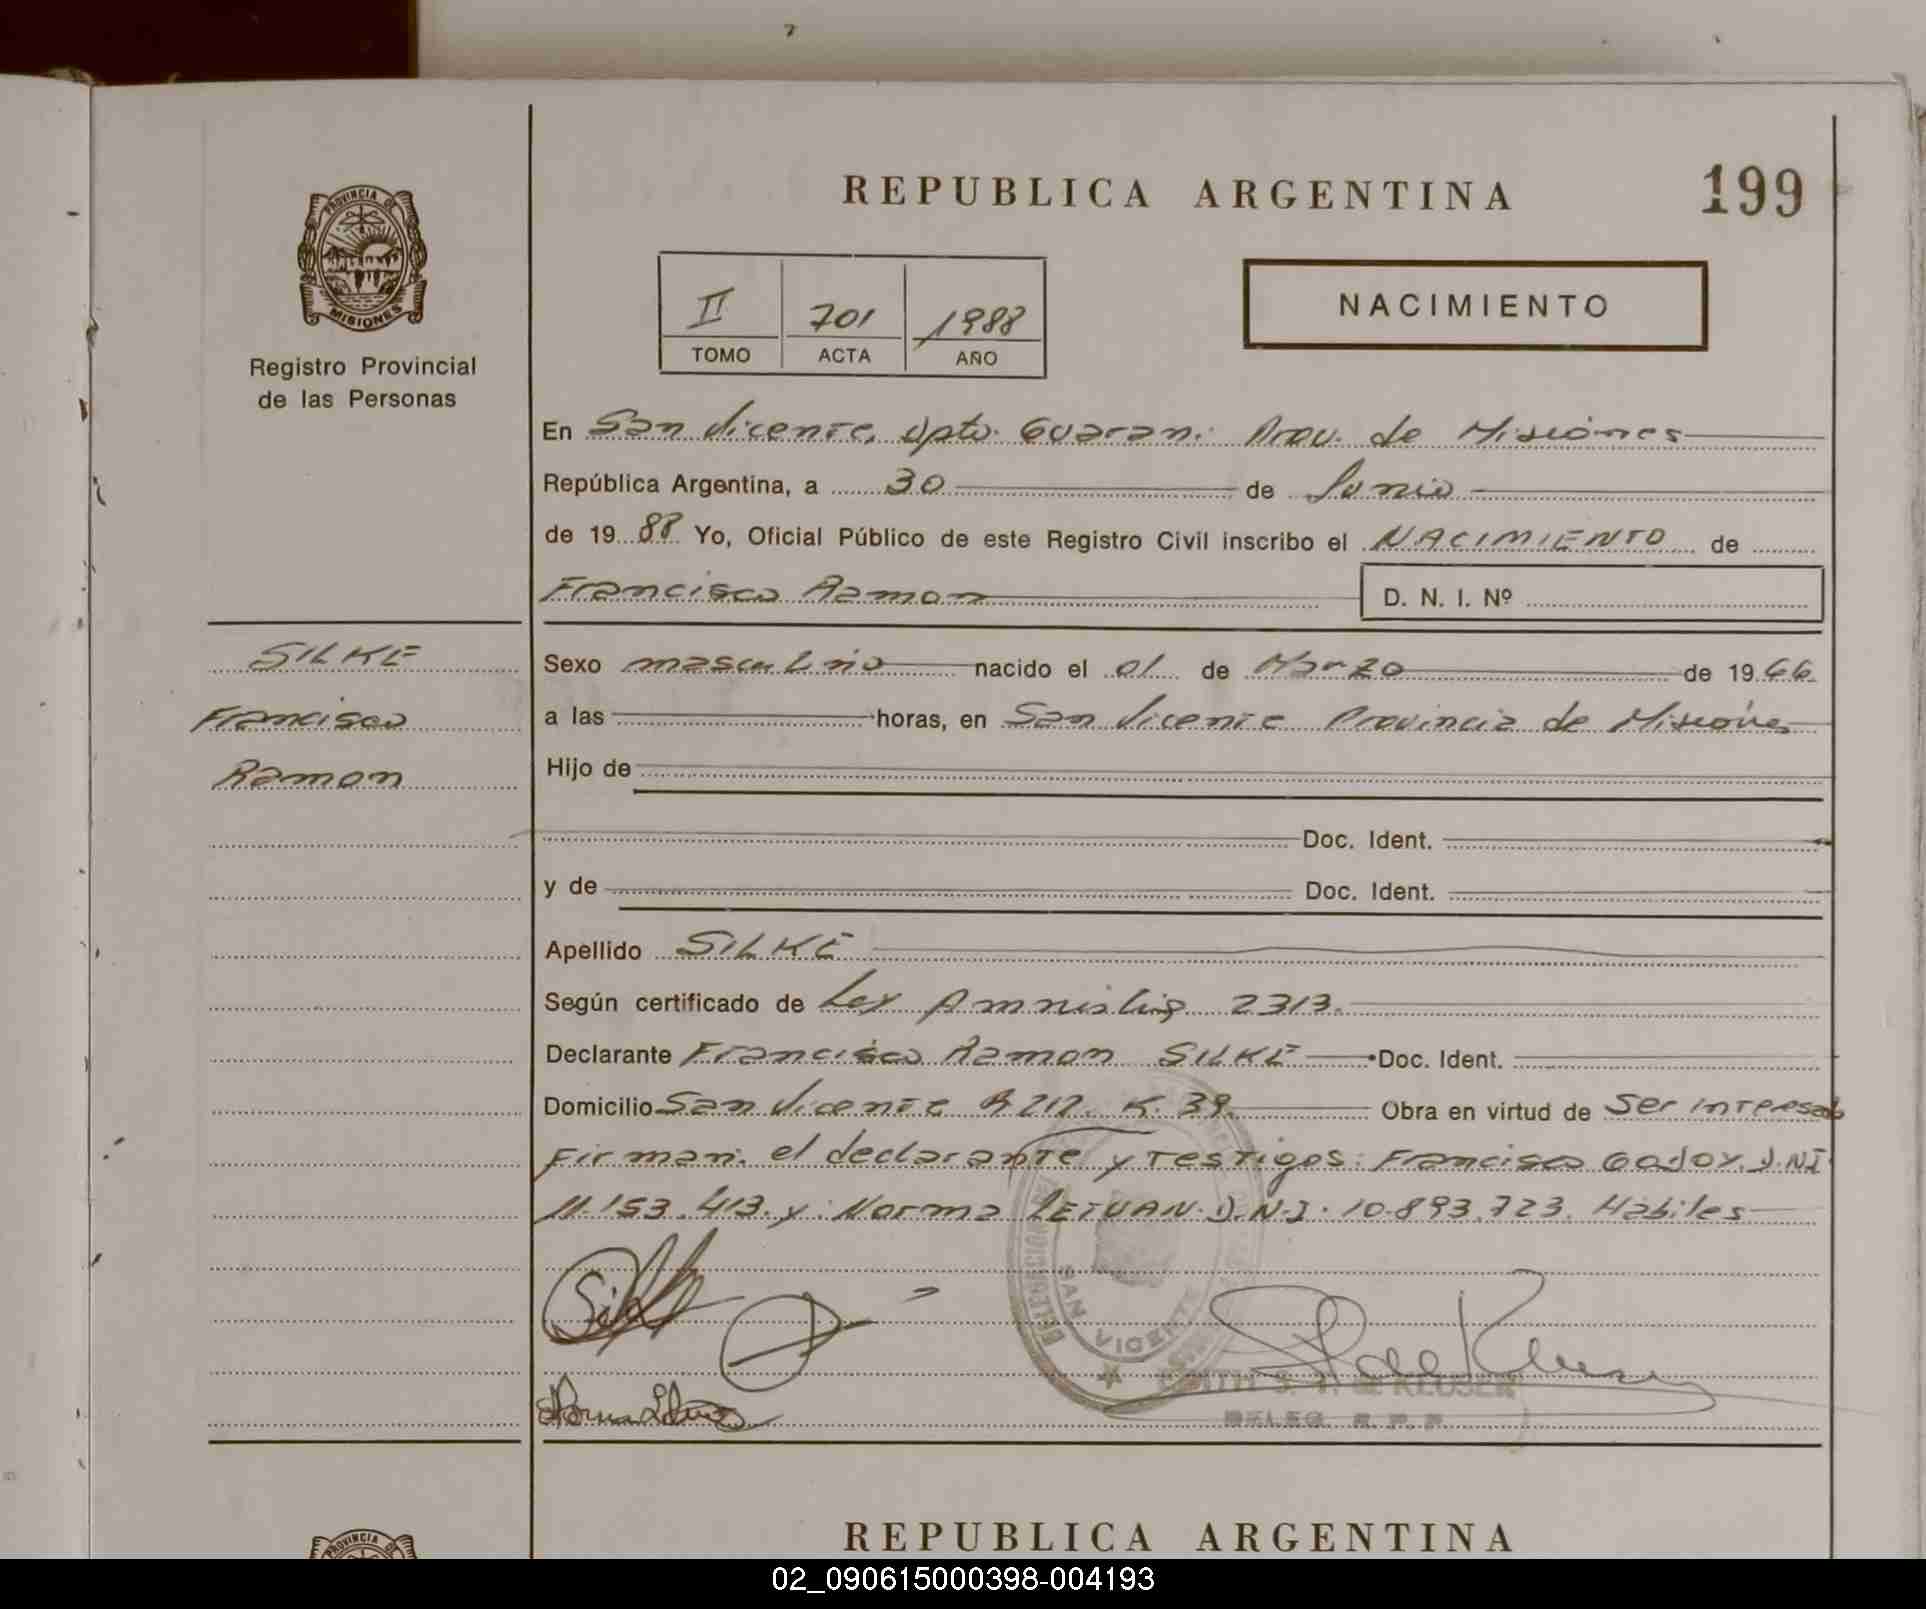 PROVINCIA DE
MISIONES
Registro Provincial
de las Personas
REPUBLICA ARGENTINA
199
II 701 1988
TOMO ACTA AÑO
NACIMIENTO
En San Vicente, Dpto. Guarani Prov. de Misiones
República Argentina, a 30 de Junio
de 1988 Yo, Oficial Público de este Registro Civil inscribo el NACIMIENTO de
Francisco Ramon D. N. I. Nº
SILKE
Francisco
Ramon
Sexo masculino nacido el 01 de Marzo de 1966
a las horas, en San Vicente Provincia de Misiones
Hijo de
Doc. Ident.
y de Doc. Ident.
Apellido SILKE
Según certificado de Ley Amnistia 2313.
Declarante Francisco Ramon SILKE Doc. Ident.
Domicilio San Vicente R 212. K. 39. Obra en virtud de Ser interesado
Firman: el declarante y testigos: Francisco Godoy. D.NI
11.153.413. y: Norma D.N.I. 10.893.723. Habiles
SAN VICENTE
DELEG. R. P. P.
PROVINCIA DE
REPUBLICA ARGENTINA
02_090615000398-004193